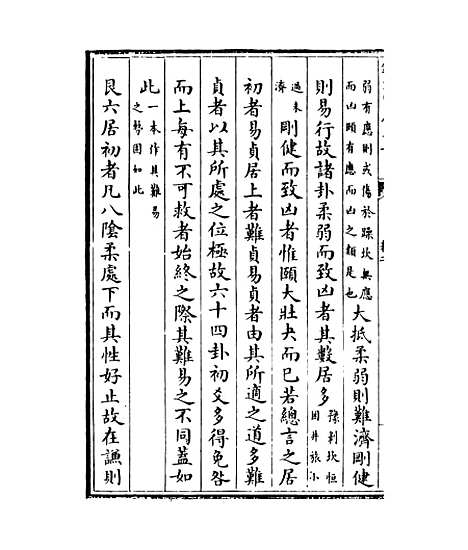 弱有應則或傷於躁坎無應
而凶頤有應而凶之類是也
大抵柔弱則難濟剛健
則易行故諸卦柔弱而致凶者其數居多
豫剝坎恒
困井旅小
過未
濟
剛健而致凶者惟頤大壯夬而已若總言之居
初者易貞居上者難貞易貞者由其所適之道多難
貞者以其所處之位極故六十四卦初爻多得免咎
而上每有不可救者始終之際其難易之不同蓋如
此
一本作其難易
之勢固如此
艮六居初者凡八陰柔處下而其性好止故在謙則